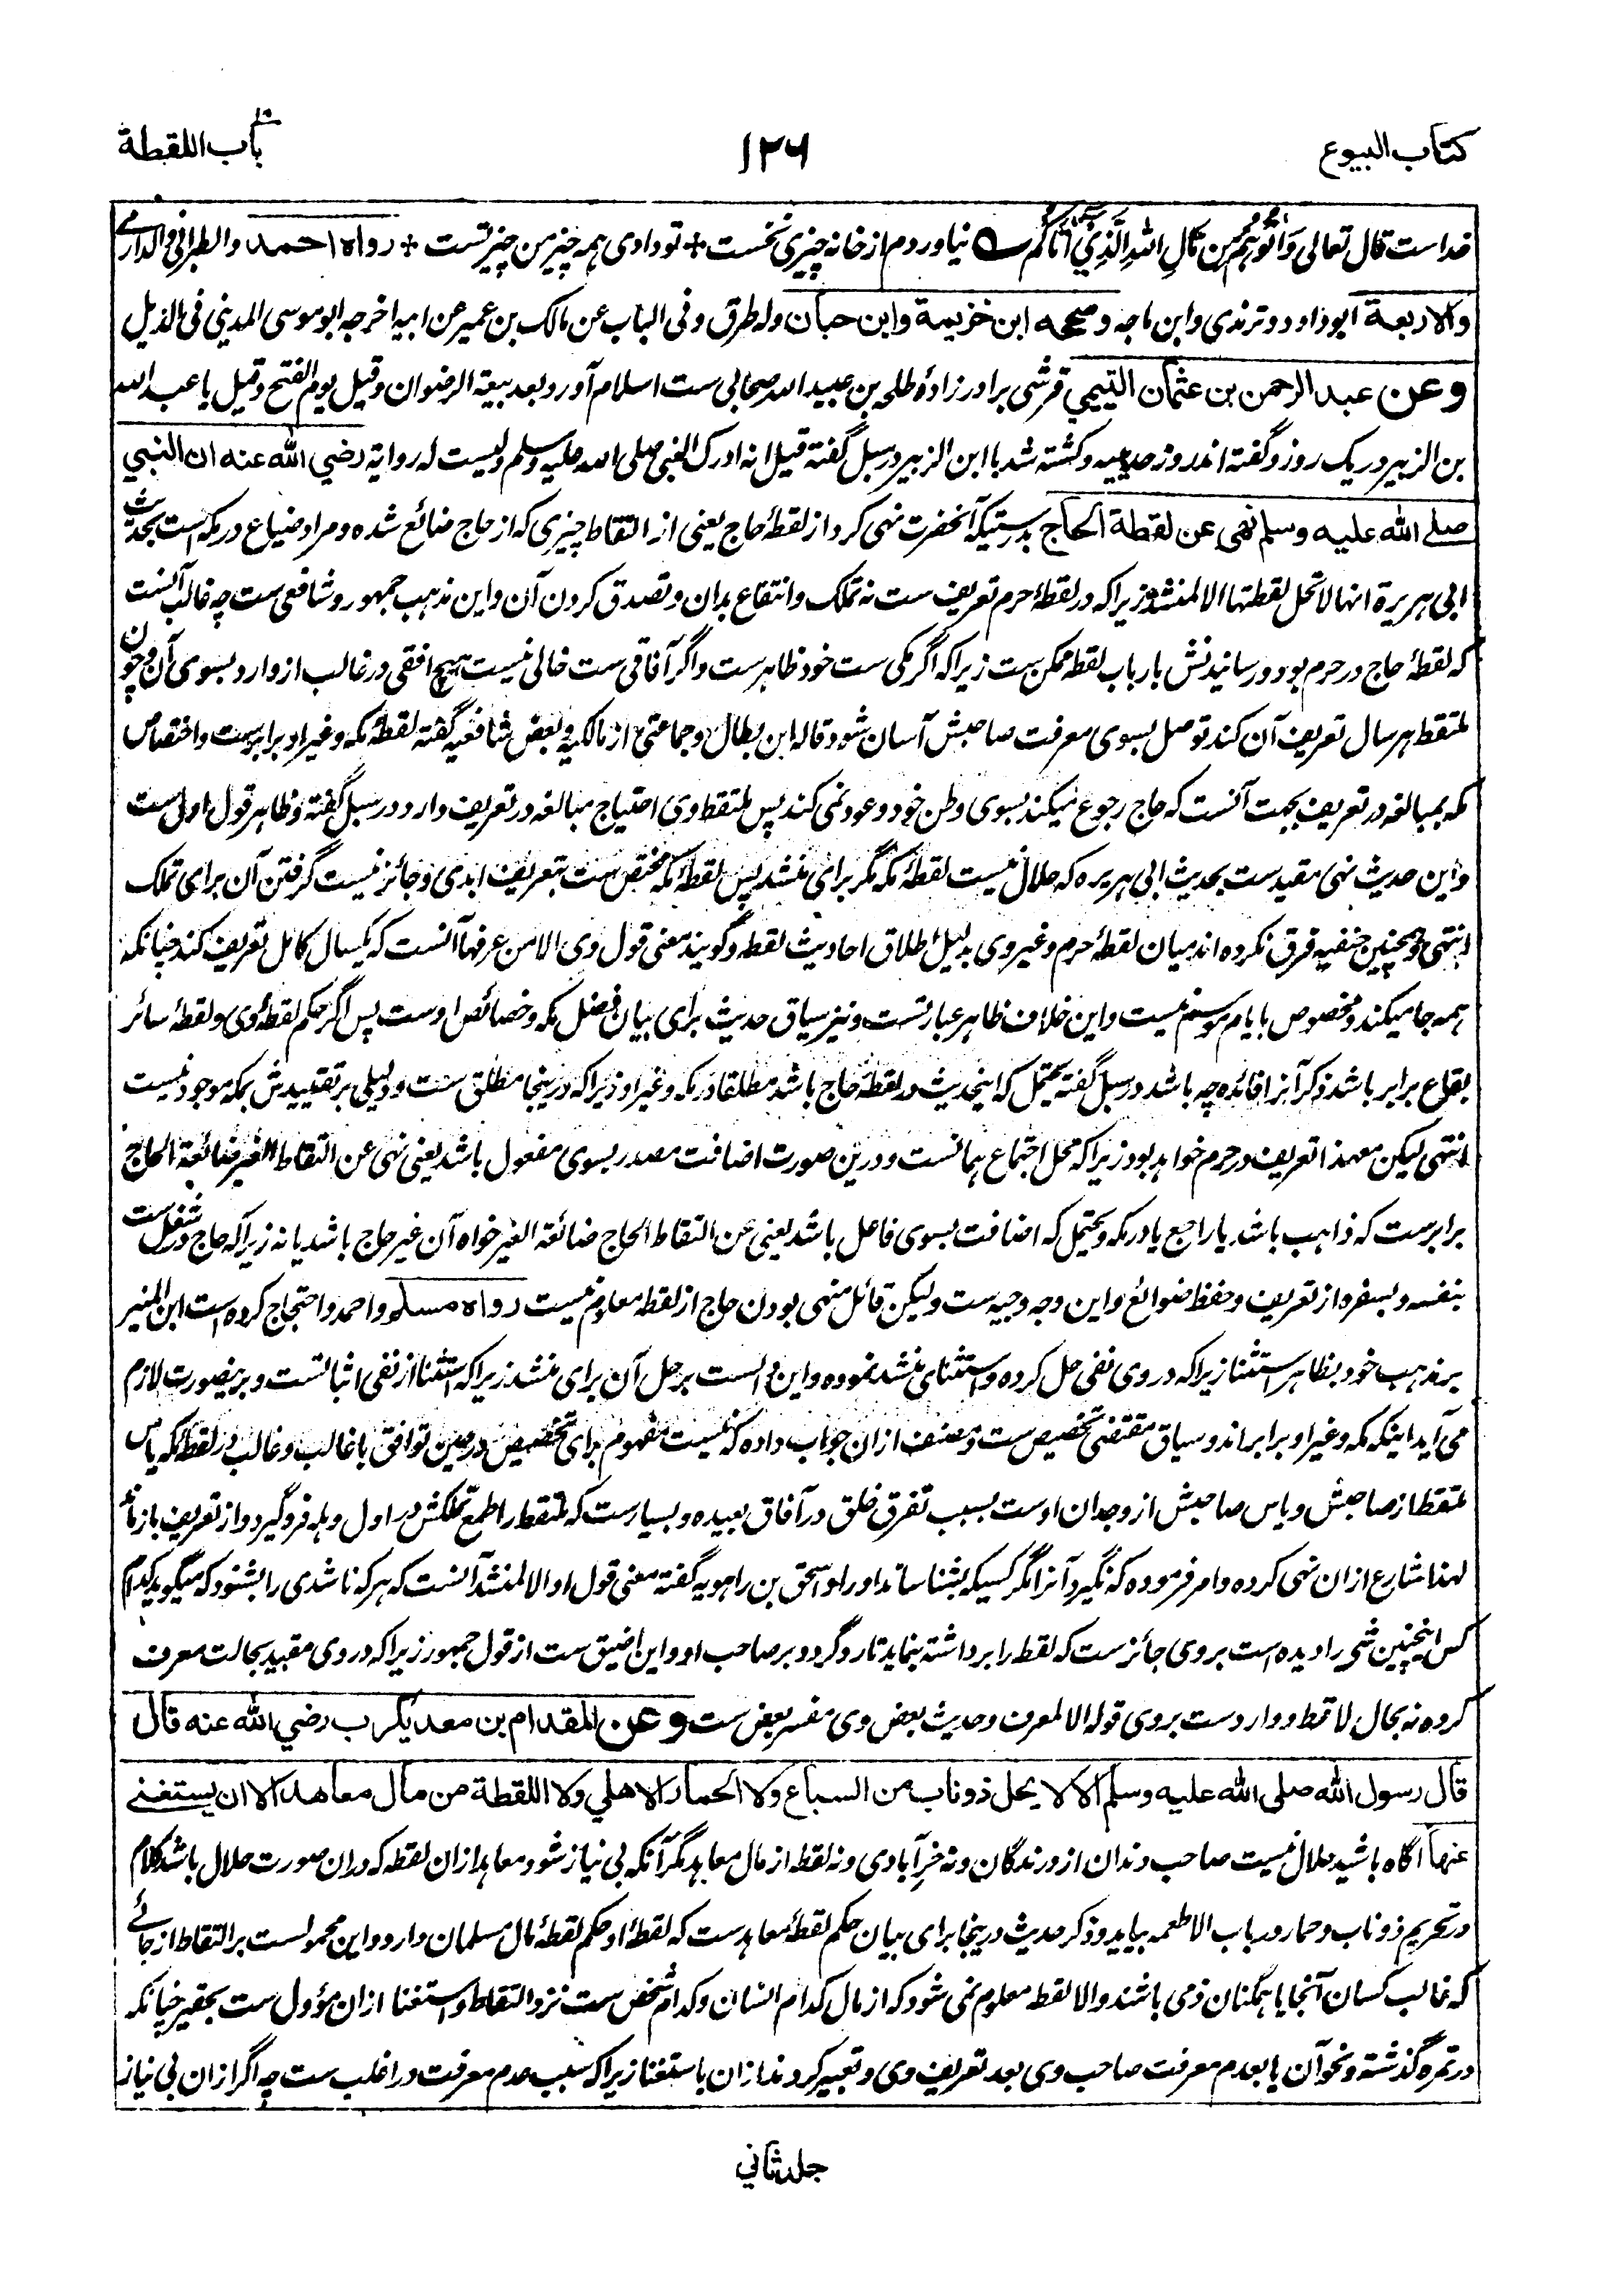 كتاب البيوع
۱۲۶
باب اللقطة
خداست قال تعالی وَآتُوهُم مِن مَّالِ اللهِ الَّذِي آتَاكُم نیاوردم از خانه چیزی نخست + تو دادی همه چیز من چیز تست + رواه احمد والطبرانی والدارمی
والاربعة ابوداود و ترمذی و ابن ماجه وصححه ابن خزيمة وابن حبان وله طرق وفی الباب عن مالک بن عمیر عن ابیه اخرجه ابو موسی المدینی فی الذیل
وعن عبد الرحمن بن عثمان التيمي قرشی برادرزادهٔ طلحه بن عبید الله صحابی ست اسلام آورد بعد بیعة الرضوان وقیل یوم الفتح وقیل یا عبد الله
بن الزبیر در یک روز و گفته اند روز حدیبیه و کشته شد با ابن الزبیر در سبل گفته قیل انه ادرک النبی صلی الله علیه وسلم ولیست له روایة رضي الله عنه ان النبي
صلے الله عليه وسلم نهى عن لقطة الحاج بدرستیکه آنحضرت نهی کرد از لقطهٔ حاج یعنی از التقاط چیزی که از حاج ضائع شده و مراد ضیاع در مکه است بحدیث
ابی هریرة انها لا تحل لقطتها الا لمنشد زیرا که در لقطهٔ حرم تعریف ست نه تملک و انتفاع بدان و تصدق کردن آن و این مذهب جمهور و شافعی ست چه غالب آنست
که لقطهٔ حاج در حرم بود و رسانیدنش بارباب لقطه ممکن ست زیرا که اگر مکی ست خود ظاهر ست و اگر آفاقی ست خالی نیست هیچ افقی در غالب از وارد بسوی آن و چون
ملتقط هر سال تعریف آن کند توصل بسوی معرفت صاحبش آسان شود قاله ابن بطال و جماعتی از مالکیه و بعض شافعیه گفته لقطهٔ مکه و غیر او برابرست و اختصاص
مکه بمبالغه در تعریف بجهت آنست که حاج رجوع میکند بسوی وطن خود و عود نمی کند پس ملتقط وی احتیاج مبالغه در تعریف دارد در سبل گفته و ظاهر قول اول ست
و این حدیث نهی مقید ست بحدیث ابی هریره که حلال نیست لقطهٔ مکه مگر برای منشد پس لقطهٔ مکه مختص ست بتعریف ابدی و جائز نیست گرفتن آن برای تملک
انتهی و همچنین حنفیه فرق نکرده اند میان لقطهٔ حرم و غیر وی بدلیل اطلاق احادیث لقطه و گویند معنی قول وی الا من عرفها آنست که یکسال کامل تعریف کند چنانکه
همه جا میکند و مخصوص بایام موسم نیست و این خلاف ظاهر عبارتست و نیز سیاق حدیث برای بیان فضل مکه و خصائص اوست پس اگر حکم لقطهٔ وی و لقطهٔ سائر
بقاع برابر باشد ذکر آنرا فائده چه باشد در سبل گفته یحتمل که اینحدیث در لقطهٔ حاج باشد مطلقا در مکه و غیر او زیرا که درینجا مطلق ست و دلیلی بر تقییدش بمکه موجود نیست
انتهی لیکن معهذا تعریف در حرم خواهد بود زیرا که محل اجتماع همانست و درین صورت اضافت مصدر بسوی مفعول باشد یعنی نهی عن التقاط الغیر ضائعة الحاج
برابرست که ذاهب باشد یا راجع یا در مکه و یحتمل که اضافت بسوی فاعل باشد یعنی عن التقاط الحاج ضائعة الغیر خواه آن غیر حاج باشد یا نه زیرا که حاج در شغل ست
بنفسه و بسفره از تعریف و حفظ ضوائع و این وجه وجیه ست ولیکن قائل منهی بودن حاج از لقطه معلوم نیست رواه مسلم و احمد و احتجاج کرده است ابن المنیر
بر مذهب خود بظاهر استثنا زیرا که در وی نفی حل کرده و استثنای منشد نموده و این دالست بر حل آن برای منشد زیرا که استثنا از نفی اثباتست و برین صورت لازم
می آید اینکه مکه و غیر او برابر اند و سیاق مقتضی تخصیص ست و مصنف ازان جواب داده که نیست مفهوم برای تخصیص در حین توافق با غالب و غالب در لقطهٔ مکه یاس
ملتقط از صاحبش و یاس صاحبش از وجدان اوست بسبب تفرق خلق در آفاق بعیده و بسیارست که ملتقط را طمع تملکش در اول وهله فروگیرد و از تعریف باز ماند
لهذا شارع ازان نهی کرده و امر فرموده که نگیرد آنرا مگر کسیکه بشناساند او را و اسحق بن راهویه گفته معنی قول او الا لمنشد آنست که هر که ناشدی را بشنود که میگوید کدام
کس اینچنین شی را دیده است بر وی جائز ست که لقطه را برداشته بنماید تا رد گردد بر صاحب او و این اضیق ست از قول جمهور زیرا که در وی مقید بحالت معرف
کرده نه بحال لاقط و وارد ست بر وی قوله الا لمعرف و حدیث بعض وی مفسر بعض ست وعن المقدام بن معد يكرب رضي الله عنه قال
قال رسول الله صلى الله عليه وسلم الا لا يحل ذو ناب من السباع ولا الحمار الاهلي ولا اللقطة من مال معاهد الا ان يستغنے
عنها آگاه باشید حلال نیست صاحب دندان از درندگان و نه خر آبادی و نه لقطه از مال معاهد مگر آنکه بی نیاز شود معاهد ازان لقطه که دران صورت حلال باشد کلام
در تحریم ذو ناب و حمار در باب الاطعمه بیاید و ذکر حدیث درینجا برای بیان حکم لقطهٔ معاهد ست که لقطهٔ او حکم لقطهٔ مال مسلمان دارد و این محمولست بر التقاط از جائے
که غالب کسان آنجا یا همگنان ذمی باشند والا لقطه معلوم نمی شود که از مال کدام انسان و کدام شخص ست نزد التقاط و استغنا ازان مؤول ست بحقیر چنانکه
در تمره گذشته و نحو آن یا بعدم معرفت صاحب وی بعد تعریف وی و تعبیر کردند ازان باستغنا زیرا که سبب عدم معرفت در اغلب ست چه اگر ازان بی نیاز
جلد ثاني